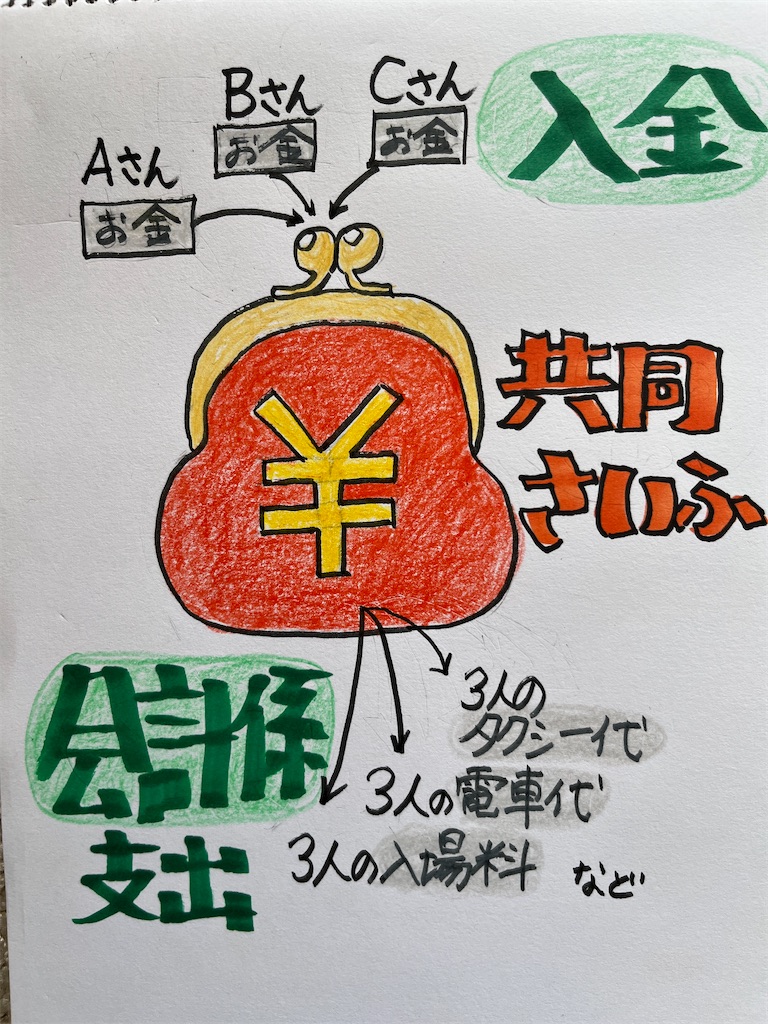 入金
Aさん
お金
Bさん
お金
Cさん
お金
¥
共同
さいふ
会計係
支出
3人の
タクシー代
3人の電車代
3人の入場料
など